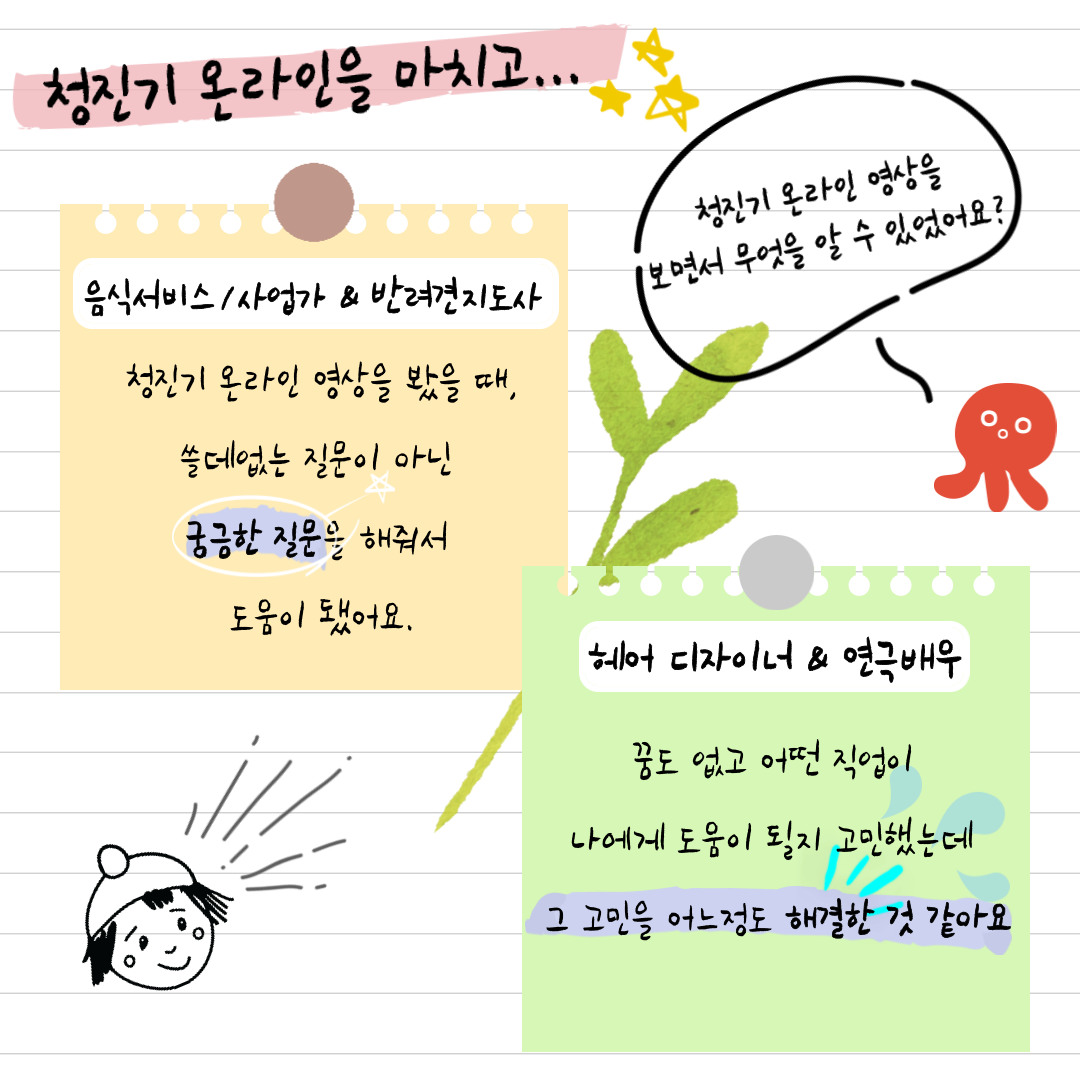 청진기 온라인을 마치고...
청진기 온라인 영상을
보면서 무엇을 알 수 있었어요?
음식서비스/사업가 & 반려견지도사
청진기 온라인 영상을 봤을 때,
쓸데없는 질문이 아닌
궁금한 질문을 해줘서
도움이 됐어요.
헤어 디자이너 & 연극배우
꿈도 없고 어떤 직업이
나에게 도움이 될지 고민했는데
그 고민을 어느정도 해결한 것 같아요